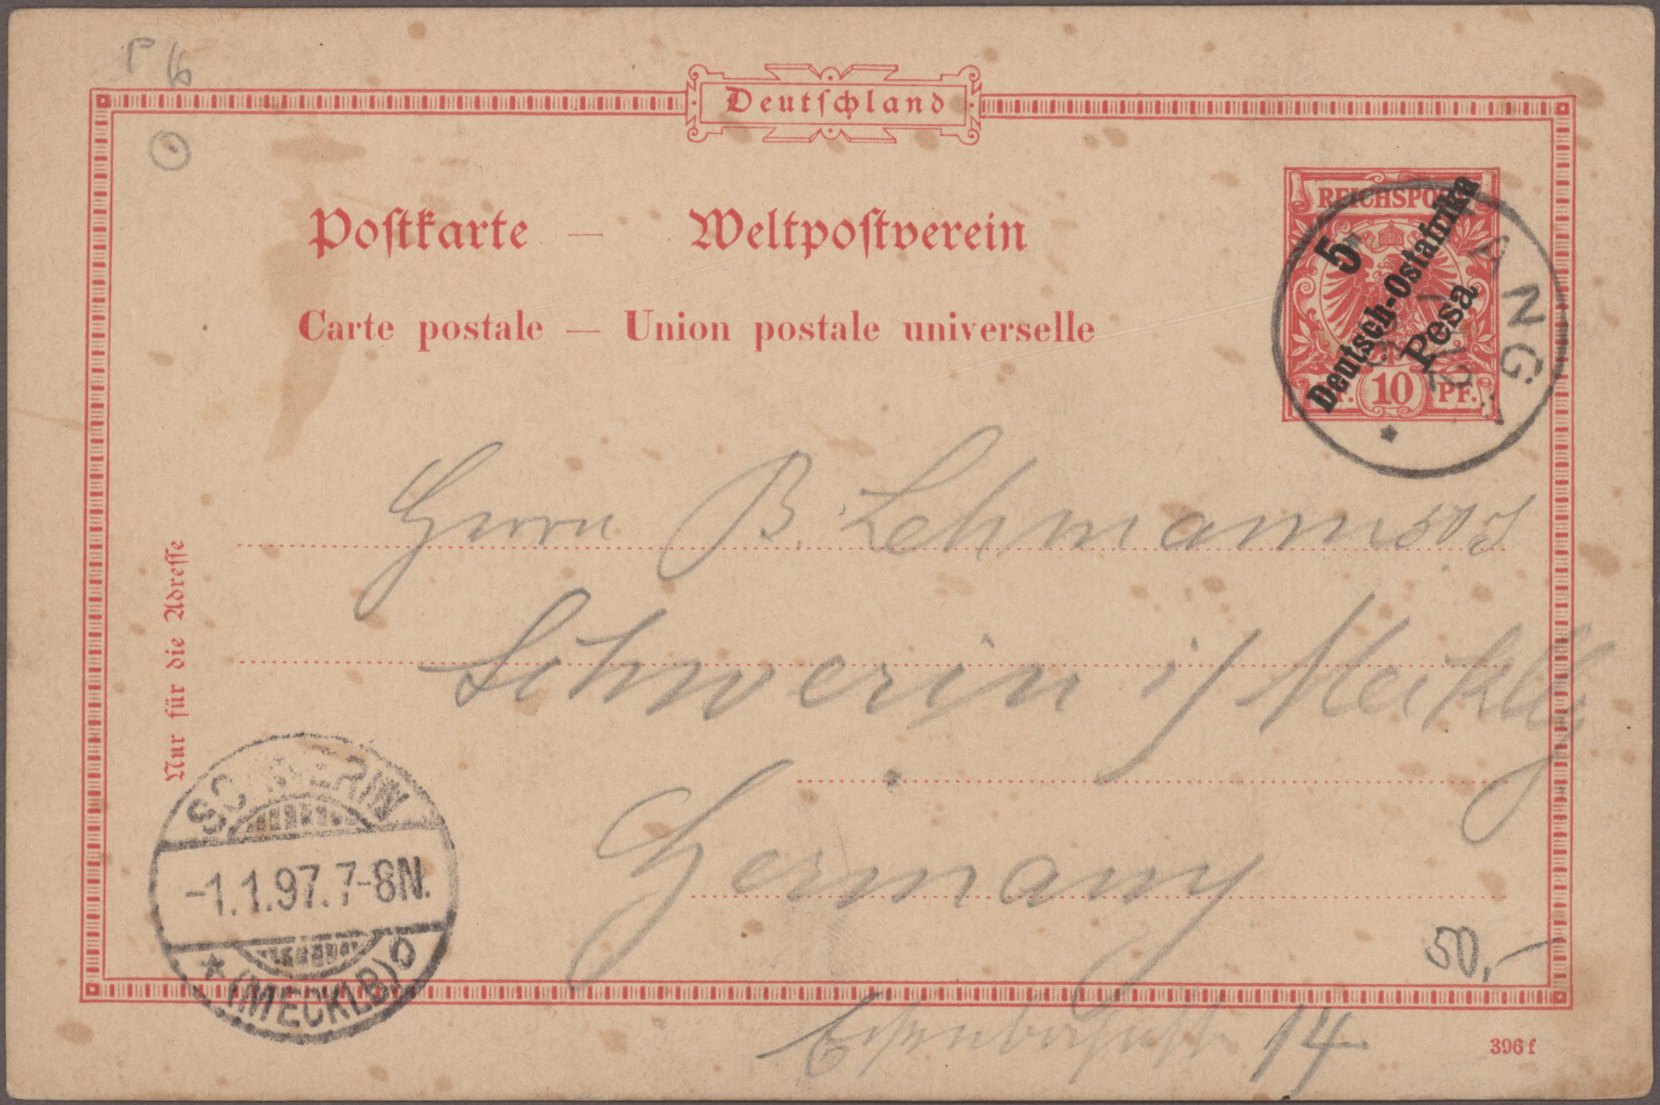 P 6
Deutschland
Postkarte — Weltpostverein
Carte postale — Union postale universelle
REICHSPOST
5
Deutsch-Ostafrika
Pesa
10 PF.
TANGA
Nur für die Adresse
Herrn B. Lehmann
Schwerin i/ Mecklbg
Germany
14
SCHWERIN
-1.1.97.7-8N.
* (MECKLB) o
50,-
396 f